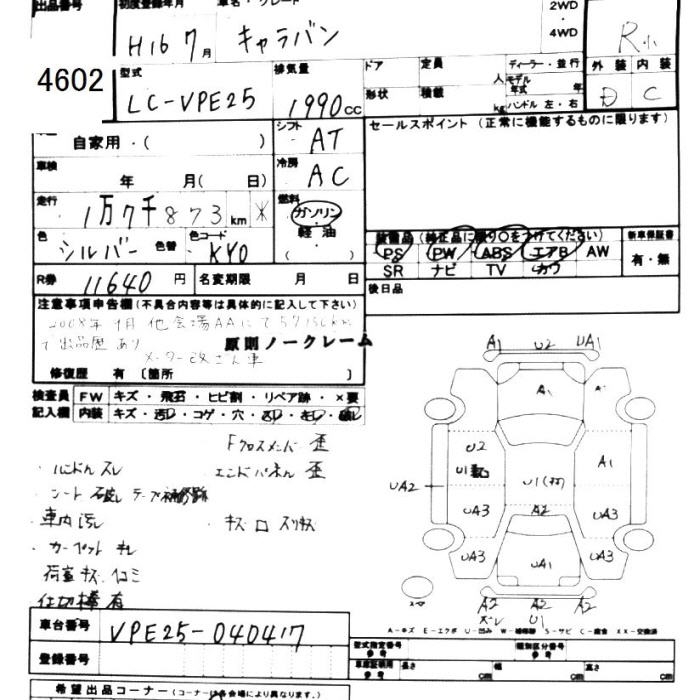 出品番号 初度登録年月 車名・グレード 2WD・4WD
4602 H16 7月 キャラバン R小
型式 LC-VPE25 排気量 1990cc ドア 定員 人 ディーラー・並行 外装 内装
形状 積載 kg モデル年式 年 ハンドル 左・右 D C
自家用・( ) シフト AT セールスポイント (正常に機能するものに限ります)
車検 年 月( 日) 冷房 AC
走行 1万7千873km * 燃料 ガソリン 軽油・( )
色 シルバー 色替 色コード KY0
装備品 (純正品に限り○をつけてください) 新車保証書
PS PW ABS エアB AW 有・無
SR ナビ TV カワ
R券 11640円 名変期限 月 日 後日品
注意事項申告欄 (不具合内容等は具体的に記入して下さい)
2008年 月 他会場AAにて57150km
で出品歴あり 原則ノークレーム
メーター改ざん車
修復歴 有 [箇所 ]
検査員記入欄 FW キズ・飛石・ヒビ割・リペア跡・×要
内装 キズ・汚レ・コゲ・穴・
Fクロスメンバー 歪
・ハンドル スレ エンドパネル 歪
・シート 破レ テープ補修跡
・車内汚レ ・キズ 凹 スリキズ
・カーペット キレ
荷室キズ、凹ミ
仕切棒有
A1 U2 UA1
A1
U2 A1
U1
UA2 U1 A2
UA3 UA3
UA3 UA3
UA1
A2 A2 A2
ズレ U1
A-キズ E-エクボ U-凹み W-補修跡 S-サビ C-腐食 XX-交換済
車台番号 VPE25-040417
登録番号
型式指定番号 参考 類別区分番号 参考
車庫証明用 参考 長さ cm 幅 cm 高さ cm
希望出品コーナー